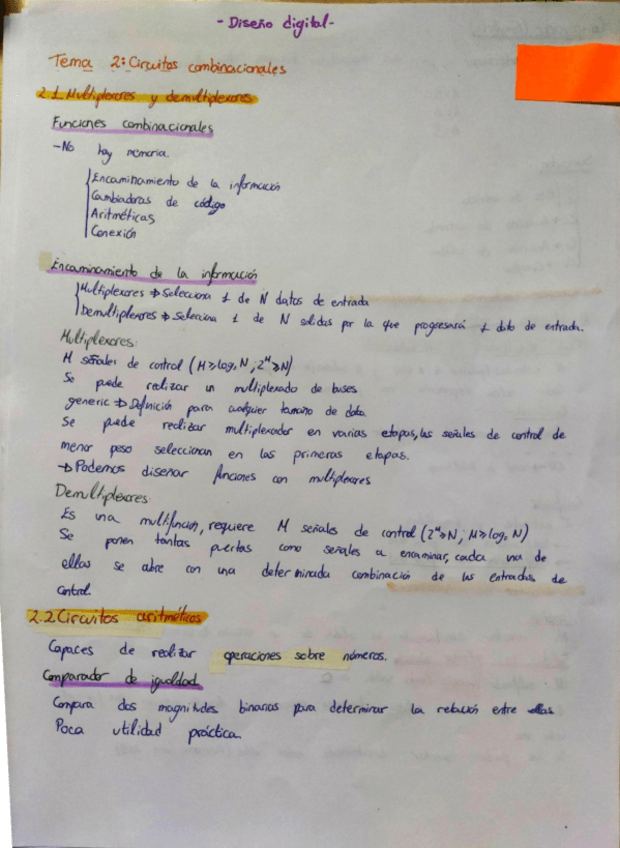 - Diseño digital -
Tema 2: Circuitos combinacionales
2.1 Multiplexores y demultiplexores
Funciones combinacionales
-No hay memoria.
Encaminamiento de la información
Cambiadoras de código
Aritméticas
Conexión
Encaminamiento de la información
Multiplexores ⇒ Selecciona 1 de N datos de entrada
Demultiplexores ⇒ Selecciona 1 de N salidas por la que progresará 1 dato de entrada.
Multiplexores:
M señales de control (M≥log₂N; 2ᴹ≥N)
Se puede realizar un multiplexado de buses
generic ⇒ Definición para cualquier tamaño de dato.
Se puede realizar multiplexador en varias etapas, las señales de control de
menor peso seleccionan en las primeras etapas.
→ Podemos diseñar funciones con multiplexores
Demultiplexores:
Es una multifunción, requiere M señales de control (2ᴹ≥N; M≥log₂N)
Se ponen tantas puertas como señales a encaminar, cada una de
ellas se abre con una determinada combinación de las entradas de
control.
2.2 Circuitos aritméticos
Capaces de realizar operaciones sobre números.
Comparador de igualdad
Compara dos magnitudes binarias para determinar la relación entre ellas
Poca utilidad práctica.